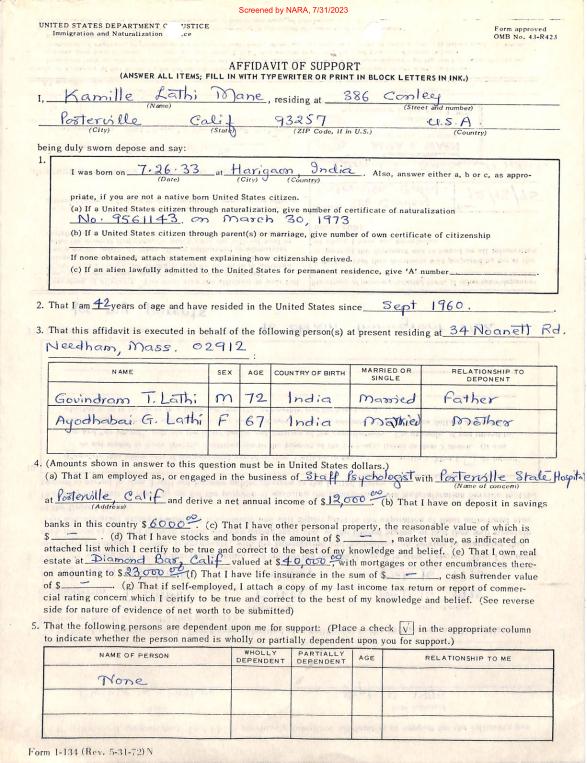 Screened by NARA, 7/31/2023
UNITED STATES DEPARTMENT O USTICE
Immigration and Naturalization ce
Form approved
OMB No. 43-R423
AFFIDAVIT OF SUPPORT
(ANSWER ALL ITEMS; FILL IN WITH TYPEWRITER OR PRINT IN BLOCK LETTERS IN INK.)
I, Kamille Lathi Mane, residing at 386 Conley
(Name) (Street and number)
Porterville Calif 93257 U.S.A.
(City) (State) (ZIP Code, if in U.S.) (Country)
being duly sworn depose and say:
1.
I was born on 7-26-33 at Harigaon, India. Also, answer either a, b or c, as appro-
(Date) (City) (Country)
priate, if you are not a native born United States citizen.
(a) If a United States citizen through naturalization, give number of certificate of naturalization
No. 9561143 on March 30, 1973
(b) If a United States citizen through parent(s) or marriage, give number of own certificate of citizenship
If none obtained, attach statement explaining how citizenship derived.
(c) If an alien lawfully admitted to the United States for permanent residence, give 'A' number
2. That I am 42 years of age and have resided in the United States since Sept 1960.
3. That this affidavit is executed in behalf of the following person(s) at present residing at 34 Noanett Rd.
Needham, Mass. 02912 ;
NAME SEX AGE COUNTRY OF BIRTH MARRIED OR SINGLE RELATIONSHIP TO DEPONENT
Govindram T. Lathi M 72 India Married Father
Ayodhabai G. Lathi F 67 India Married Mother
4. (Amounts shown in answer to this question must be in United States dollars.)
(a) That I am employed as, or engaged in the business of Staff Psychologist with Porterville State Hospital
(Name of concern)
at Porterville, Calif and derive a net annual income of $12,000.00 (b) That I have on deposit in savings
(Address)
banks in this country $6000.00 (c) That I have other personal property, the reasonable value of which is
$ — . (d) That I have stocks and bonds in the amount of $ — , market value, as indicated on
attached list which I certify to be true and correct to the best of my knowledge and belief. (e) That I own real
estate at Diamond Bar, Calif valued at $40,000.00 with mortgages or other encumbrances there-
on amounting to $23,000.00 (f) That I have life insurance in the sum of $ — , cash surrender value
of $ — (g) That if self-employed, I attach a copy of my last income tax return or report of commer-
cial rating concern which I certify to be true and correct to the best of my knowledge and belief. (See reverse
side for nature of evidence of net worth to be submitted)
5. That the following persons are dependent upon me for support: (Place a check √ in the appropriate column
to indicate whether the person named is wholly or partially dependent upon you for support.)
NAME OF PERSON WHOLLY DEPENDENT PARTIALLY DEPENDENT AGE RELATIONSHIP TO ME
None
Form I-134 (Rev. 5-31-72) N